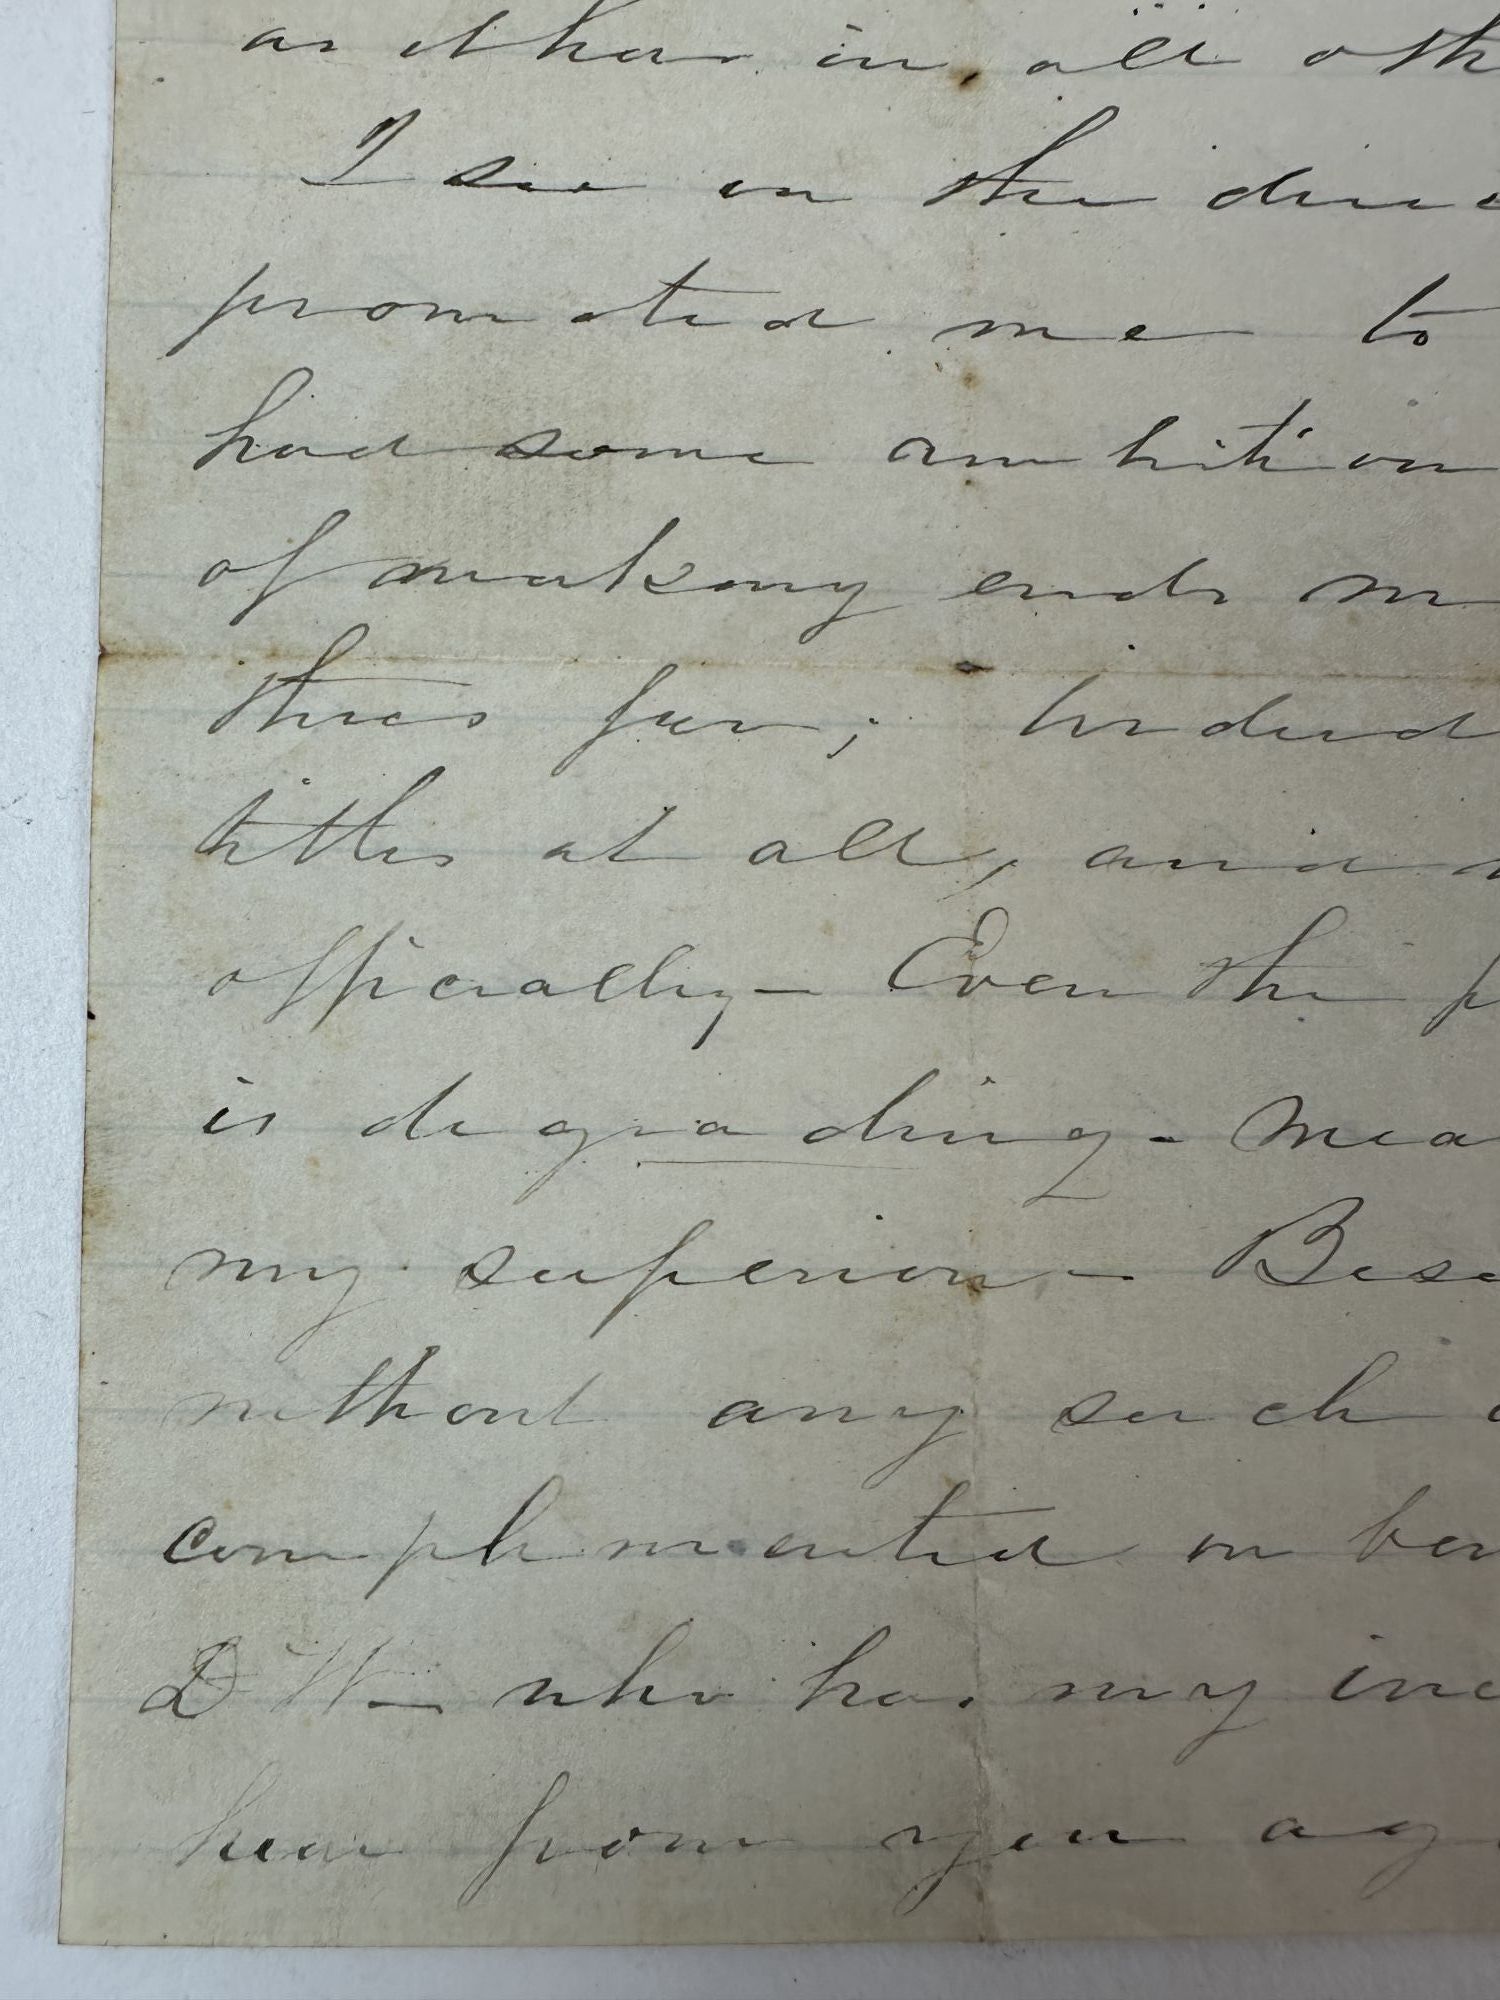 as it has in all oth
I see on the direc
promoted me to
had some ambition
of making ends m
thus far; indeed
titles at all, and
officially - Even the p
is degrading - mea
my superior - Besi
without any such
complimented on ben
D W - who has my inc
hear from you aga